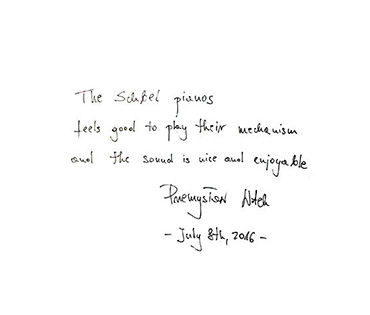 The Schßel pianos
feels good to play their mechanism
and the sound is nice and enjoyable
Przemysław
- July 8th, 2016 -